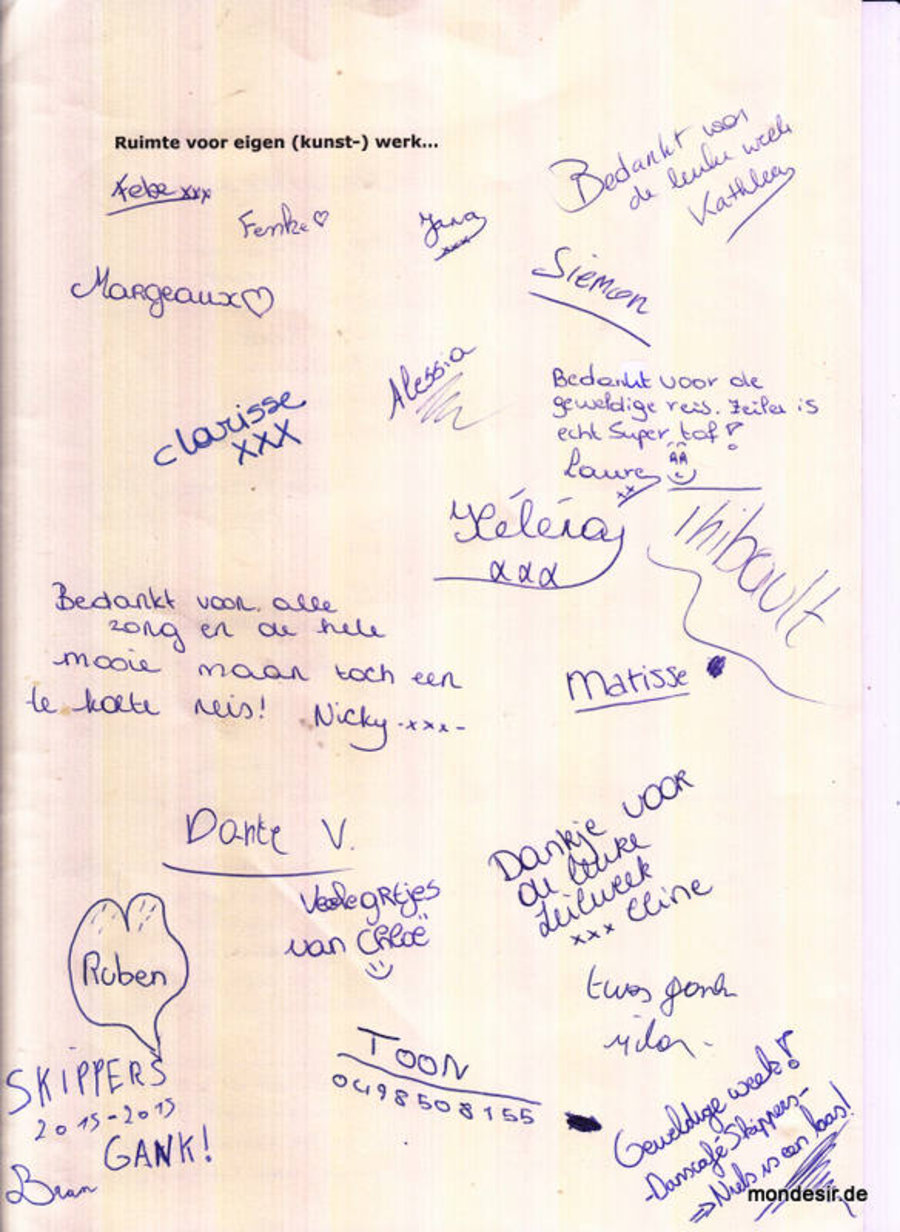 Ruimte voor eigen (kunst-) werk...
Bedankt voor
de leuke week
Kathleen
Febe xxx
Femke ♡
Jana
xxx
Margeaux ♡
Siemon
Alessia
Clarisse
xxx
Bedankt voor de
geweldige reis. Zeilen is
echt super tof!
Laura
xx
Héléna
xxx
Thibault
Bedankt voor alle
zorg en de hele
mooie maar toch een
te korte reis! Nicky -xxx-
Matisse
Dante V.
Dankje voor
de leuke
zeilweek
xxx Eline
Veele grtjes
van Chloë
Ruben
twas
Milan
TOON
0498508155
SKIPPERS
2015-2015
GANK!
Bran
Geweldige week!
-Danscafé Skippers-
=> Niels is een baas!
mondesir.de